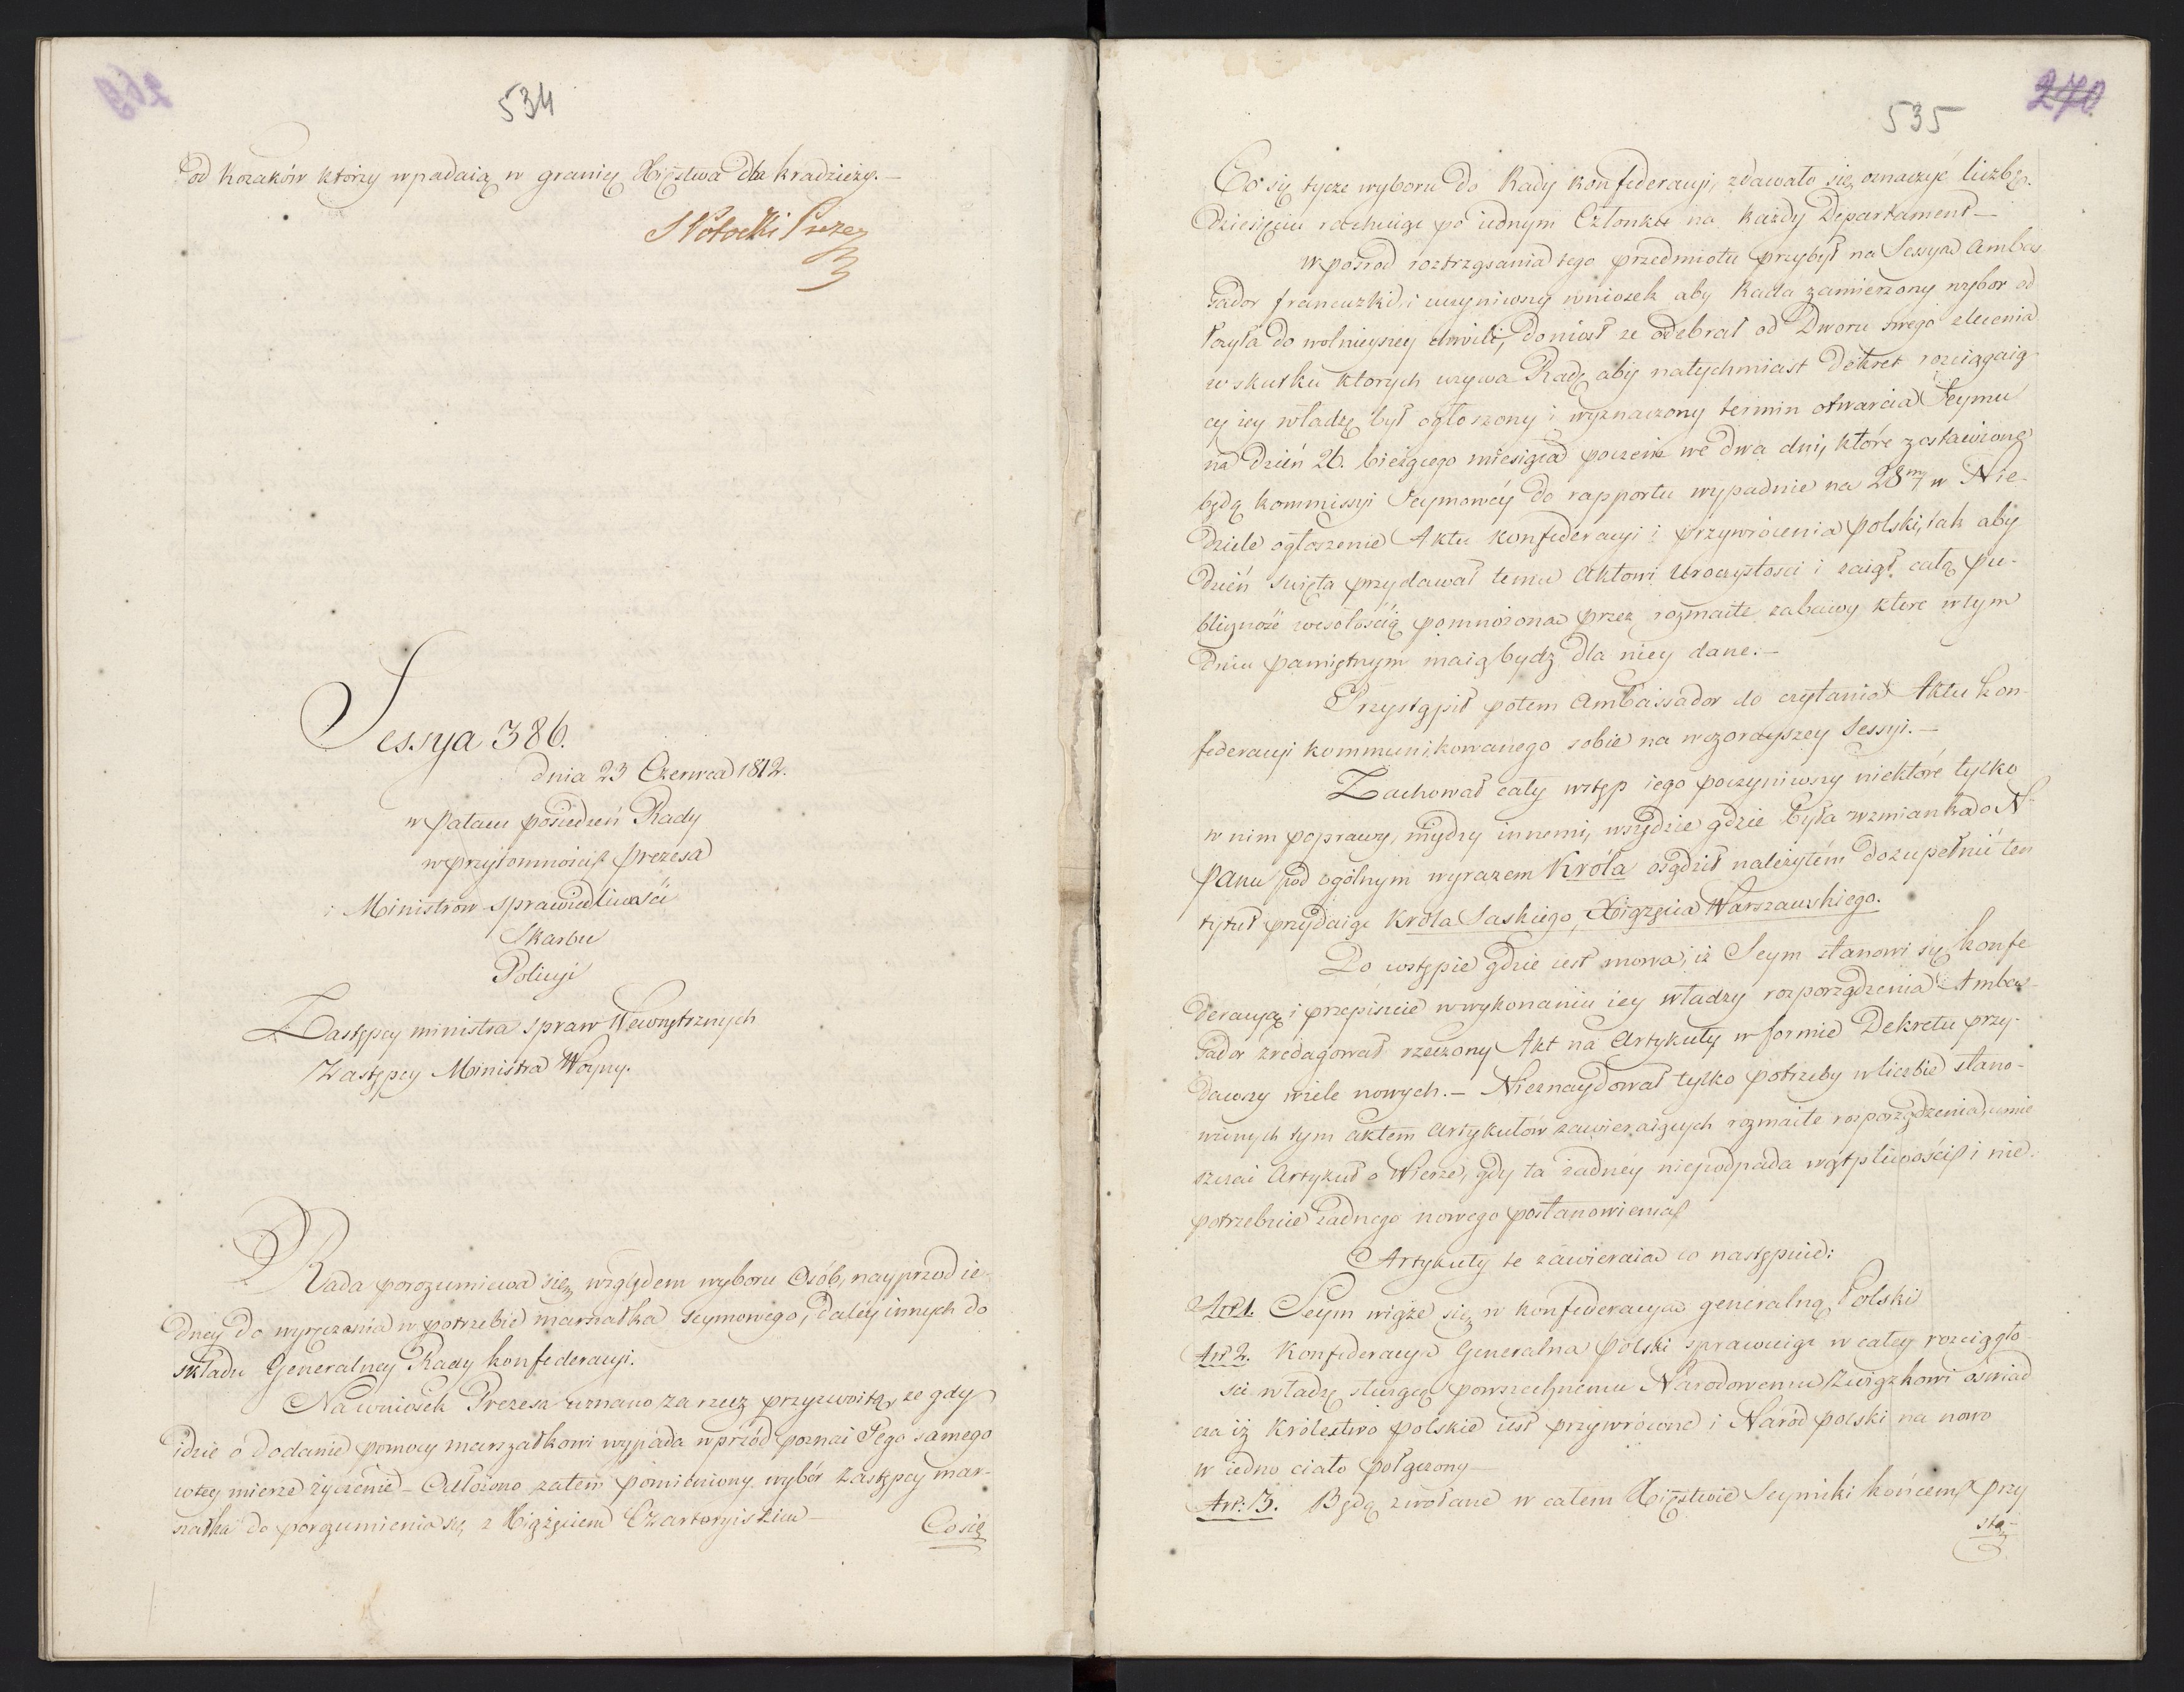 534
od kozaków którzy wpadaią w granicę Xięstwa dla kradzieży.—
S Potocki Prezes
Sessya 386.
dnia 23 Czerwca 1812.
w Pałacu posiedzeń Rady
w przytomności Prezesa
i Ministrow sprawiedliwości
Skarbu
Policyi
Zastępcy ministra spraw Wewnętrznych
Zastępcy Ministra Woyny.
Rada porozumiewa się względem wyboru Osób, nayprzod ie-
dney do wyręczania w potrzebie marszałka seymowego, daley innych do
składu Generalney Rady konfederacyi.
Na wniosek Prezesa uznano za rzecz przyzwoitą, ze gdy
idzie o dodanie pomocy marszałkowi wypada wprzód poznać Jego samego
w tey mierze życzenie — Odłożono zatem pomieniony wybór zastępcy mar-
szałka do porozumienia się z Xiążęciem Czartoryiskim —
Co się
270
535
Co się tycze wyboru do Rady konfederacyi, zdawało się oznaczyć liczbę
dziesięciu rachuiąc po iednym Członku na każdy Departament —
W pośrod roztrząsania tego przedmiotu przybył na Sessyą Ambas
sador francuzki i uczyniwszy wniosek aby Rada zamierzony wybor od
łożyła do wolnieyszey chwili, doniosł ze odebrał od Dworu swego zlecenia
w skutku ktorych wzywa Radę aby natychmiast Dekret rozciągaią
cy iey władzę był ogłoszony i wyznaczony termin otwarcia Seymu
na dzień 26. bieżącego miesiąca poczem we dwa dni, które zostawione
będą kommissyi Seymowéy do rapportu wypadnie na 28my w Nie-
dziele ogłoszenie Aktu konfederacyi i przywrócenia Polski, tak aby
dzień święta przydawał temu Aktowi Uroczystosci i zaiął całą pu-
bliczność wesołością pomnożona przez rozmaite zabawy które w tym
dniu pamiętnym maią bydz dla niey dane.—
Przystąpił potem Ambassador do czytania Aktu kon-
federacyi kommunikowanego sobie na wczorayszey Sessyi.—
Zachował cały wstęp iego poczyniwszy niektóre tylko
w nim poprawy, między innemi, wszędzie gdzie była wzmianka o N
Panu pod ogólnym wyrazem Króla osądził należytém dozupełnić ten
tytuł przydaiąc Króla Saskiego, Xiążęcia Warszawskiego.
Po wstępie gdzie iest mowa, iż Seym stanowi się konfe
deracyą i przepisuie w wykonaniu iey władzy rozporządzenia Ambas-
sador zredagował rzeczony Akt na Artykuły w formie Dekretu przy-
dawszy wiele nowych.— Nieznaydował tylko potrzeby w liczbie stano-
wionych tym aktem Artykułów zawieraiących rozmaite rosporządzenia umie
szczać Artykuł o Wierze, gdy ta żadnéy niepodpada wątpliwości i nie
potrzebuie żadnego nowego postanowienia
Artykuły te zawieraia co następuie:
Art. 1. Seym wiąże się w konfederacya generalną Polski
Art. 2. Konfederacya Generalna Polski sprawuiąc w całey rozciągło-
sci władzę służącą powszechnemu Narodowemu Związkowi oświad
cza iż Królestwo polskie iest przywrócone i Naród polski na nowo
w iedno ciało połączony —
Art. 3. Będą zwołane w całem Xięstwie Seymiki końcem przy
stą-